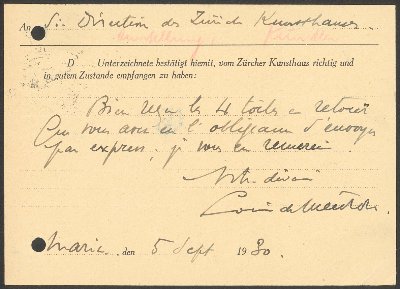 An Direction des Zürich Kunsthauses
D Unterzeichnete bestätigt hiemit, vom Zürcher Kunsthaus richtig und
in gutem Zustande empfangen zu haben:
Bien reçu les 4 toiles en retour
que vous avez eu l'obligeance d'envoyer
par express, je vous en remercie
Votre
den 5 Sept 1930.